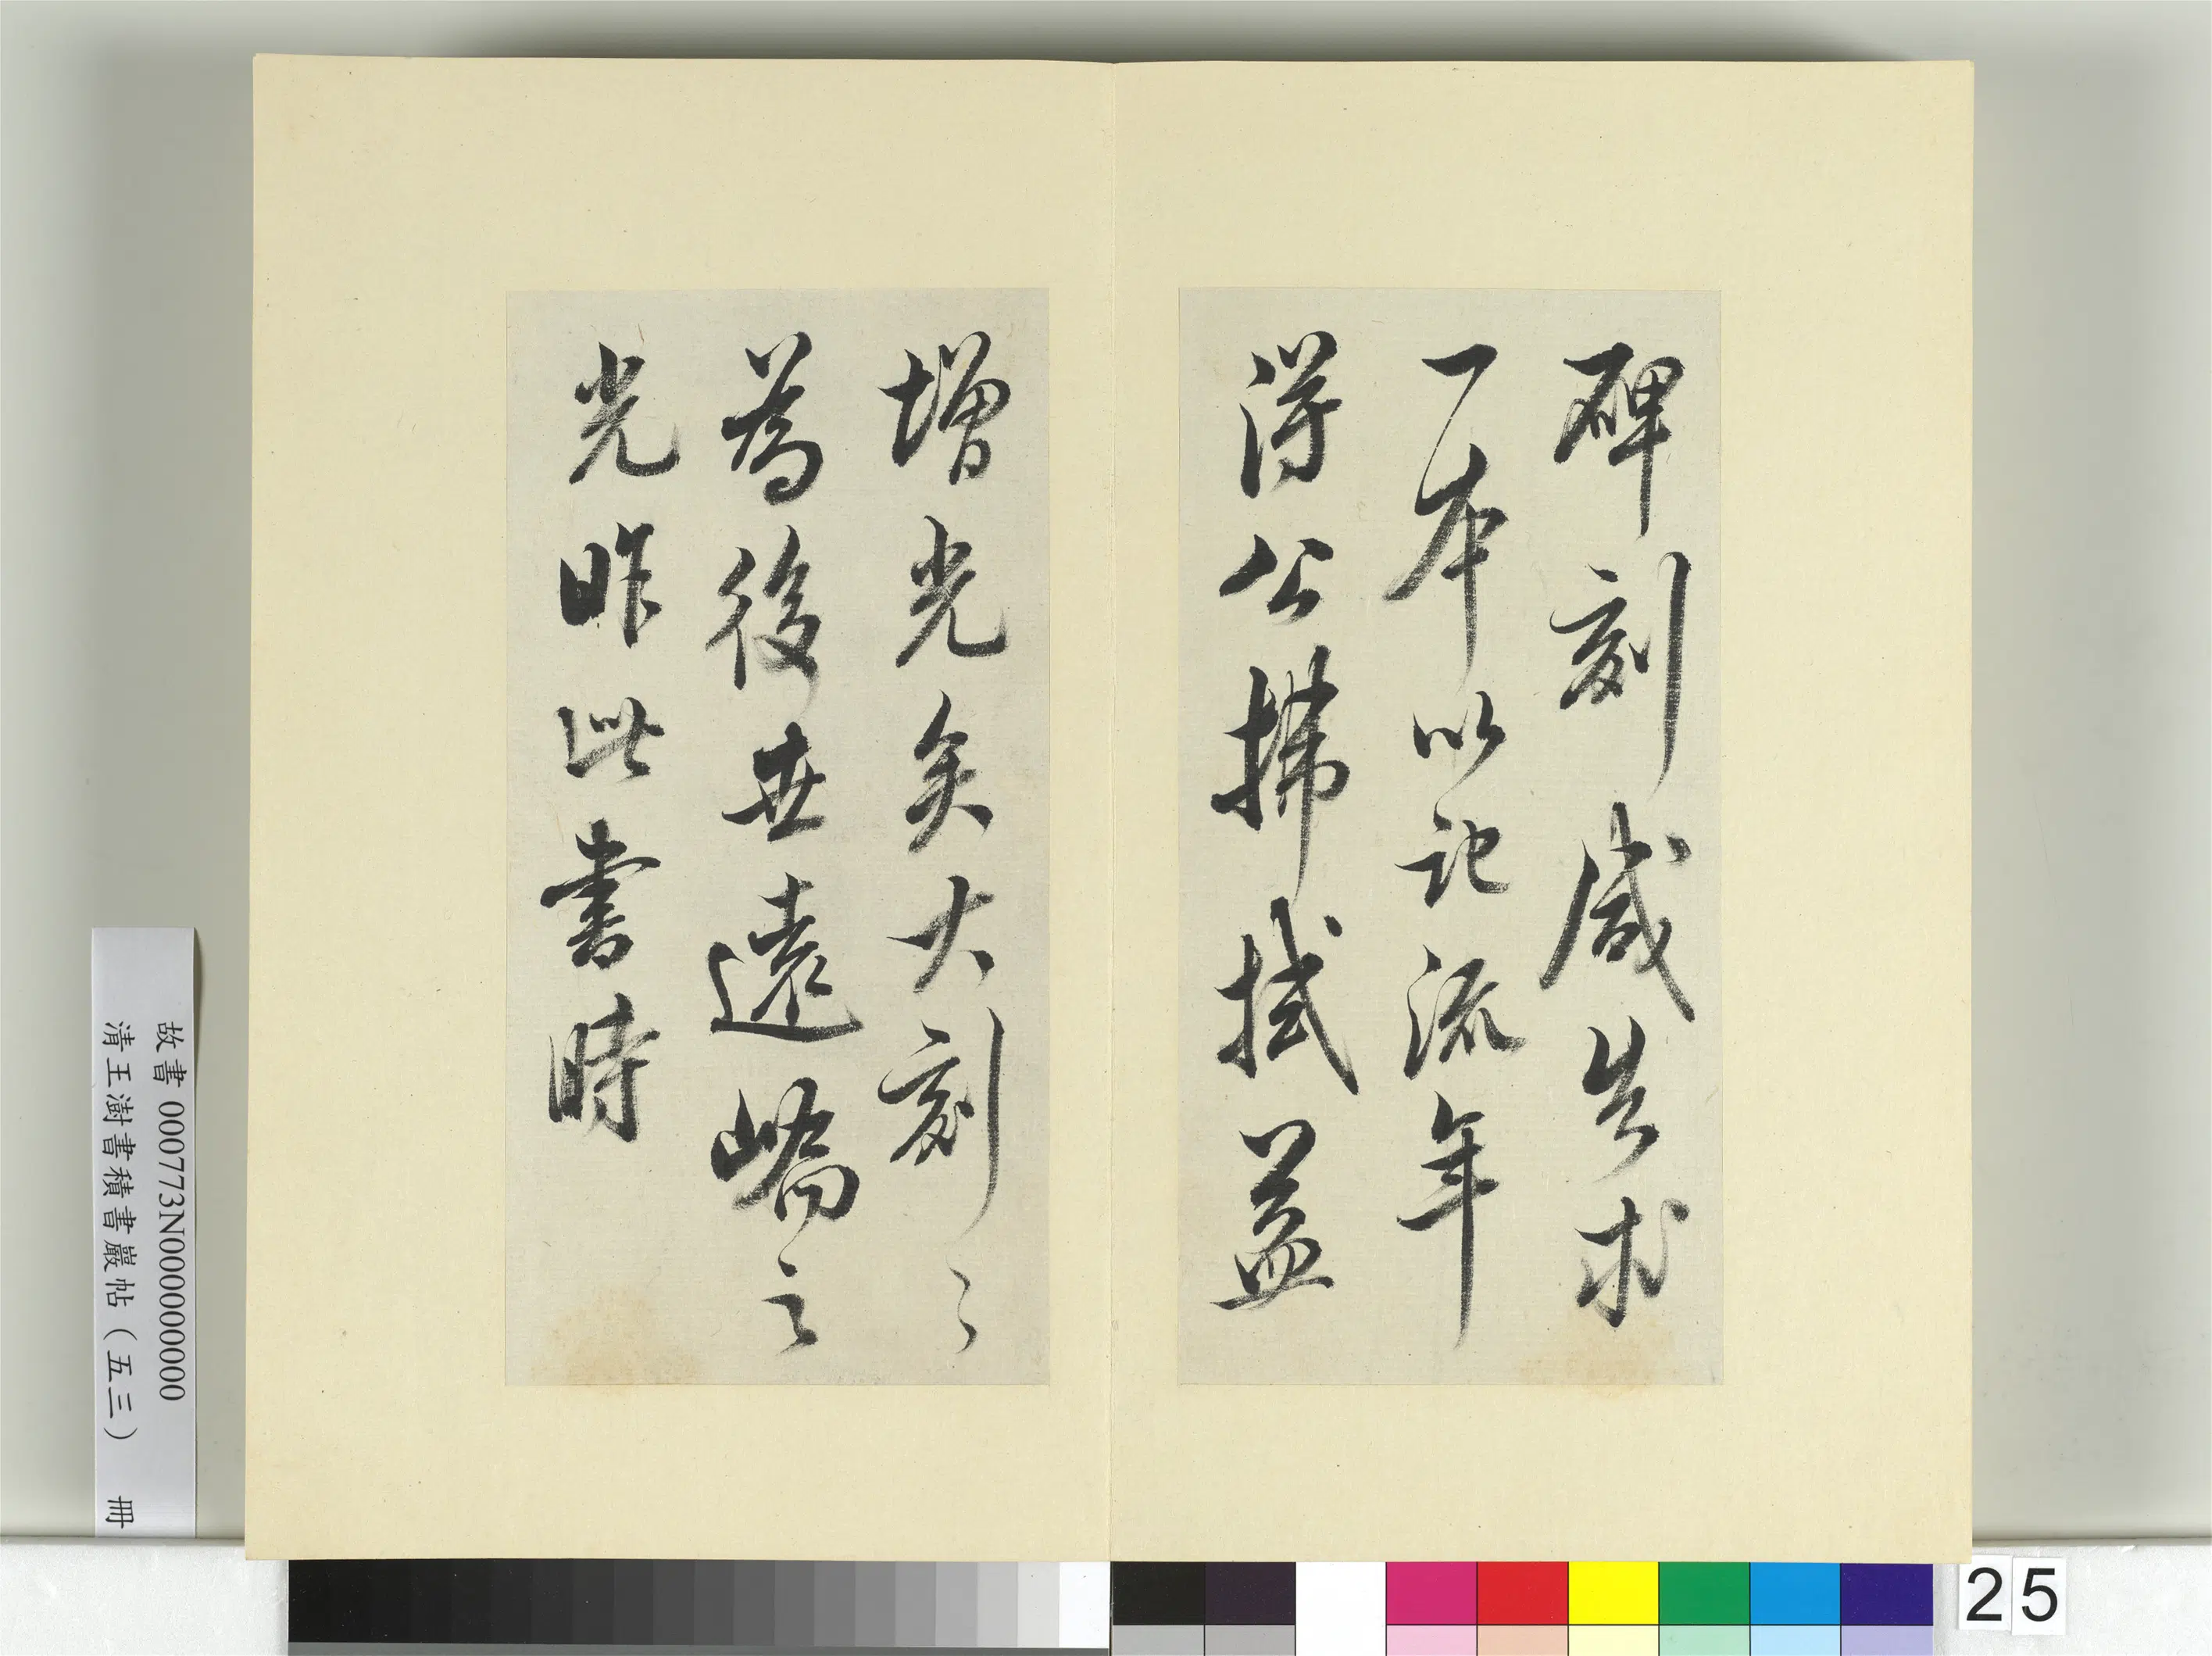 碑刻歲告求
一本以記流年
得公掃拭益
增光矣大刻之
為後世遠嶠之
光昨此書時
故書 000773N000000000
清王澍書積書巖帖（五三） 冊
25